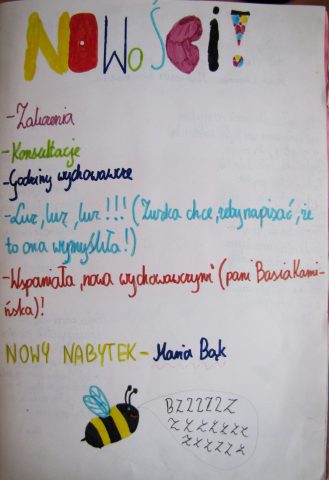 NOWOŚCI!
-Zaliczenia
-Konsultacje
-Godziny wychowawcze
-Luz, luz, luz!!! (Zuzka chce, żeby napisać, że
to ona wymyśliła!)
-Wspaniała "nowa wychowawczyni" (pani Basia Kami-
ińska)!
NOWY NABYTEK - Mania Bąk
BZZZZZZ
ZZZZZZZ
ZZZZZZ